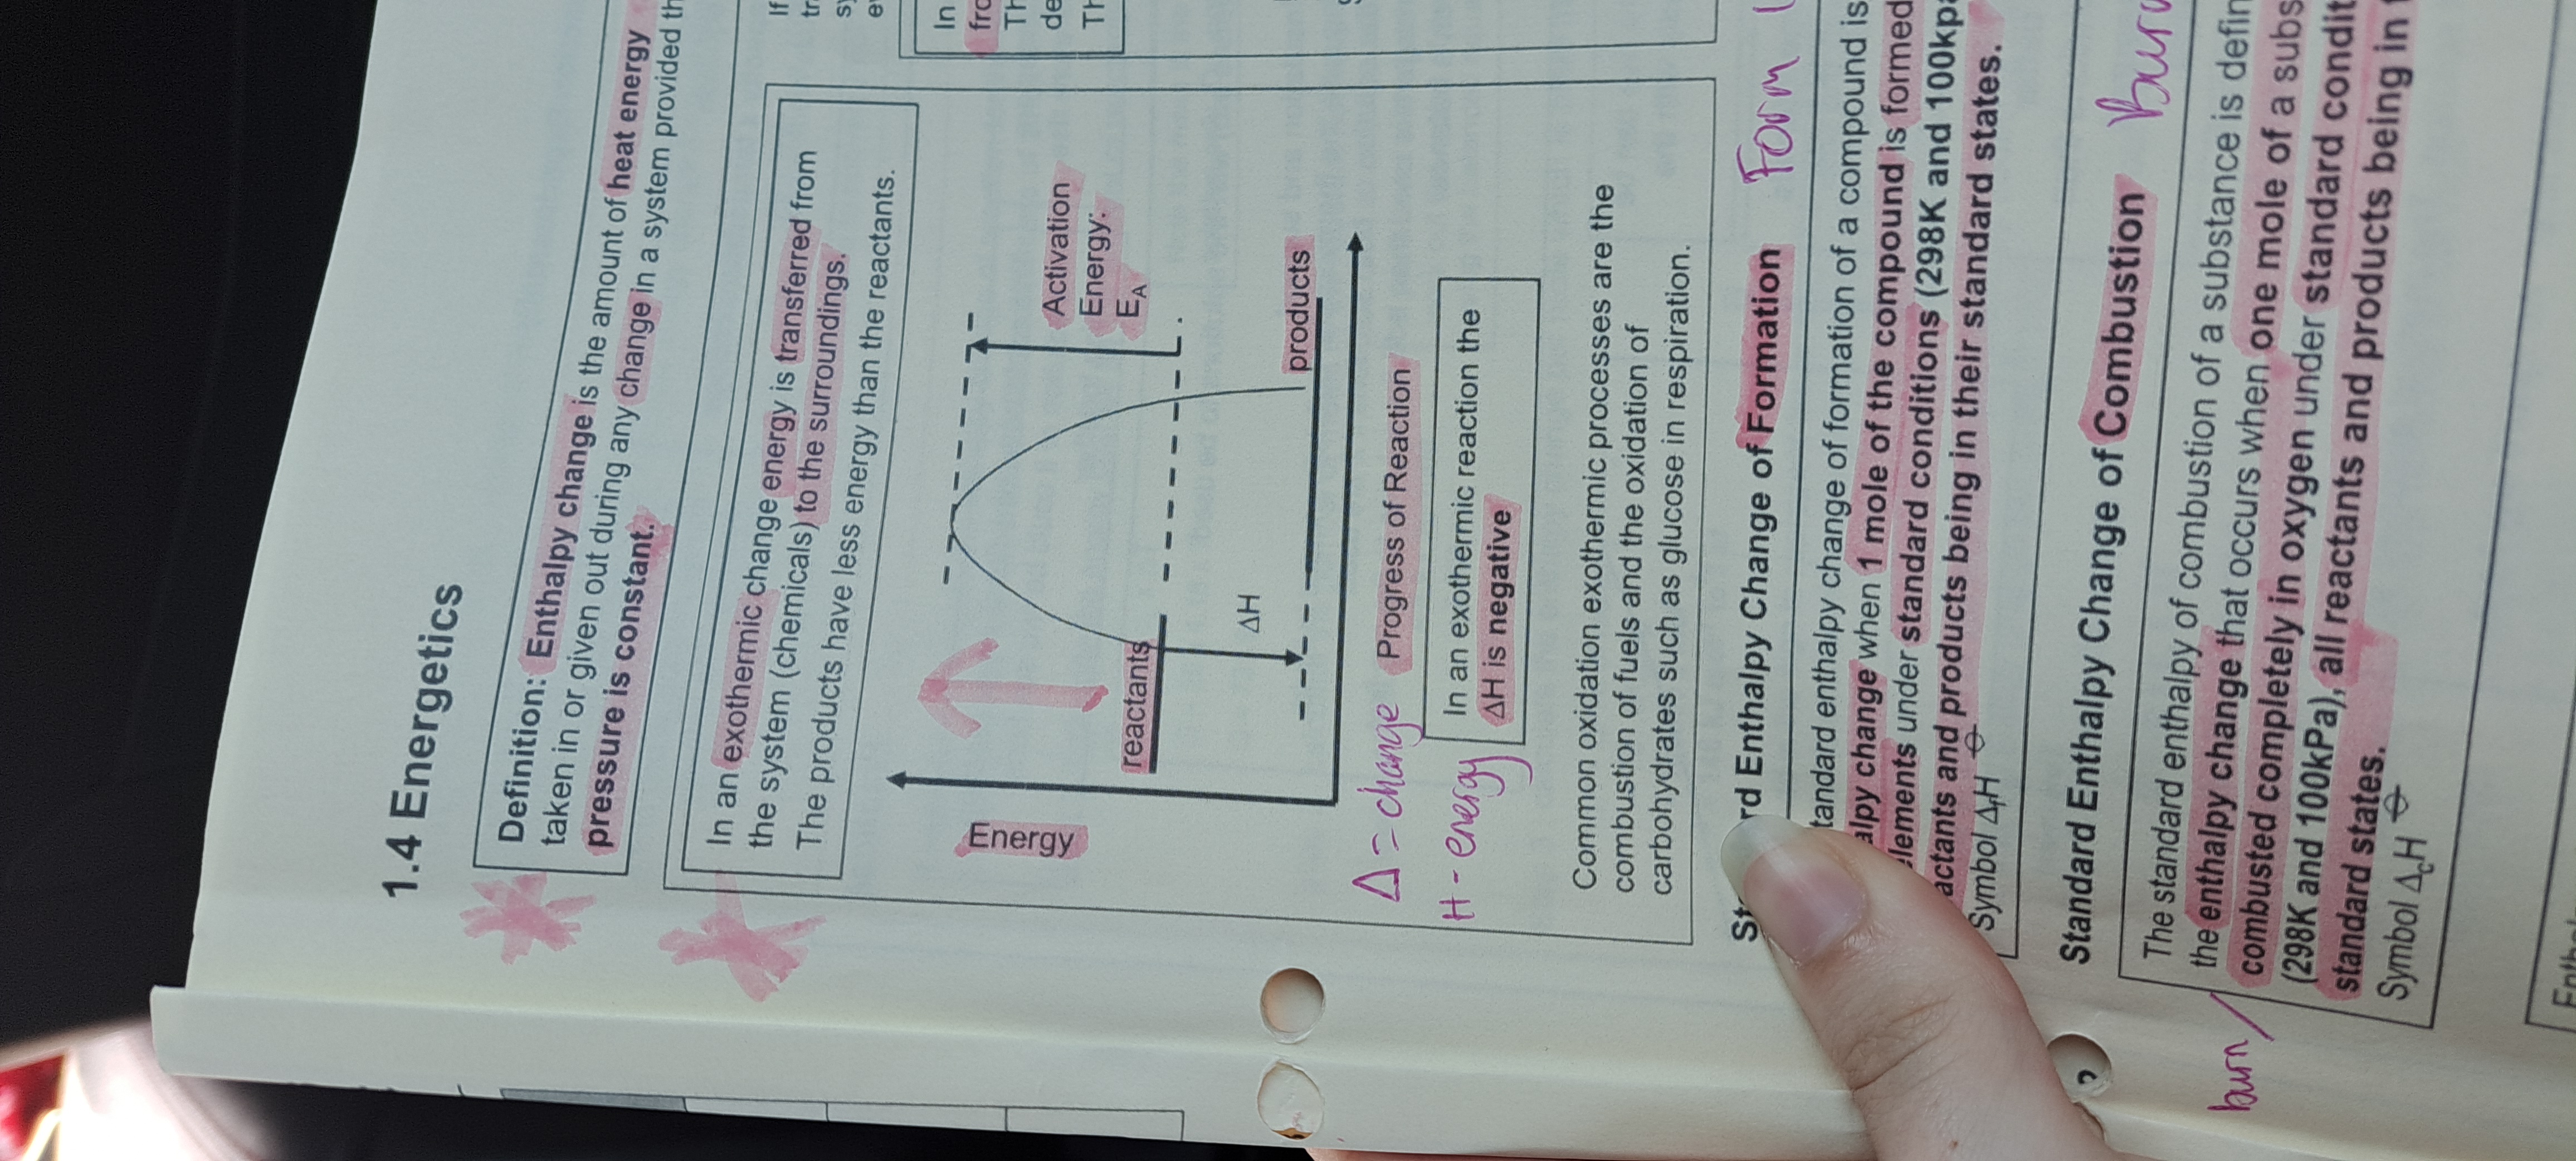 1.4 Energetics
Definition: Enthalpy change is the amount of heat energy
taken in or given out during any change in a system provided th
pressure is constant.
In an exothermic change energy is transferred from
the system (chemicals) to the surroundings.
The products have less energy than the reactants.
Energy
reactants
Activation
Energy:
EA
ΔH
products
Progress of Reaction
Δ = change
H - energy
In an exothermic reaction the
ΔH is negative
Common oxidation exothermic processes are the
combustion of fuels and the oxidation of
carbohydrates such as glucose in respiration.
If
In
fro
Th
de
Th
rd Enthalpy Change of Formation Form
tandard enthalpy change of formation of a compound is
alpy change when 1 mole of the compound is formed
elements under standard conditions (298K and 100kp
actants and products being in their standard states.
Symbol ΔfH⦵
Standard Enthalpy Change of Combustion burn
The standard enthalpy of combustion of a substance is defin
the enthalpy change that occurs when one mole of a subs
combusted completely in oxygen under standard condit
(298K and 100kPa), all reactants and products being in
standard states.
Symbol ΔcH⦵
burn